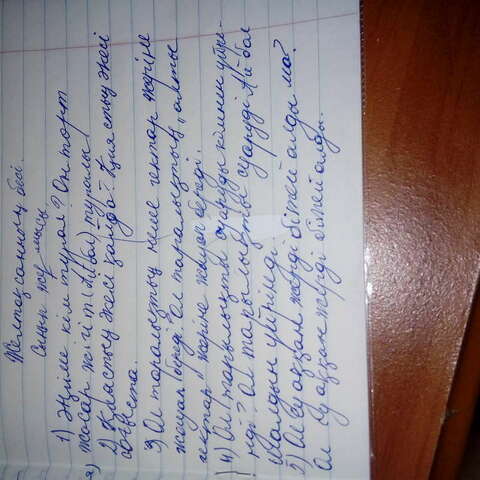 Желтоқсанның бесі.
Сынып жұмысы.
1) Әңгіме кім турал? Он төрт
жасар жігіт (Айбол) туралы
2) Қиястың әкесі қайда? Қиястың әкесі
соғыста.
3) Ол таралықтың неше гектар жеріне
жауап береді? Ол таралықтың алты
гектар жеріне жауап береді.
4) Ол тарылықты суаруды кімнен үйре-
нді? Ол тарылықты суаруді Айбол
шалдын үйрінді.
5) Ол су аққан жерді бітей алды ма?
Ол су аққан жерді бітей алды.